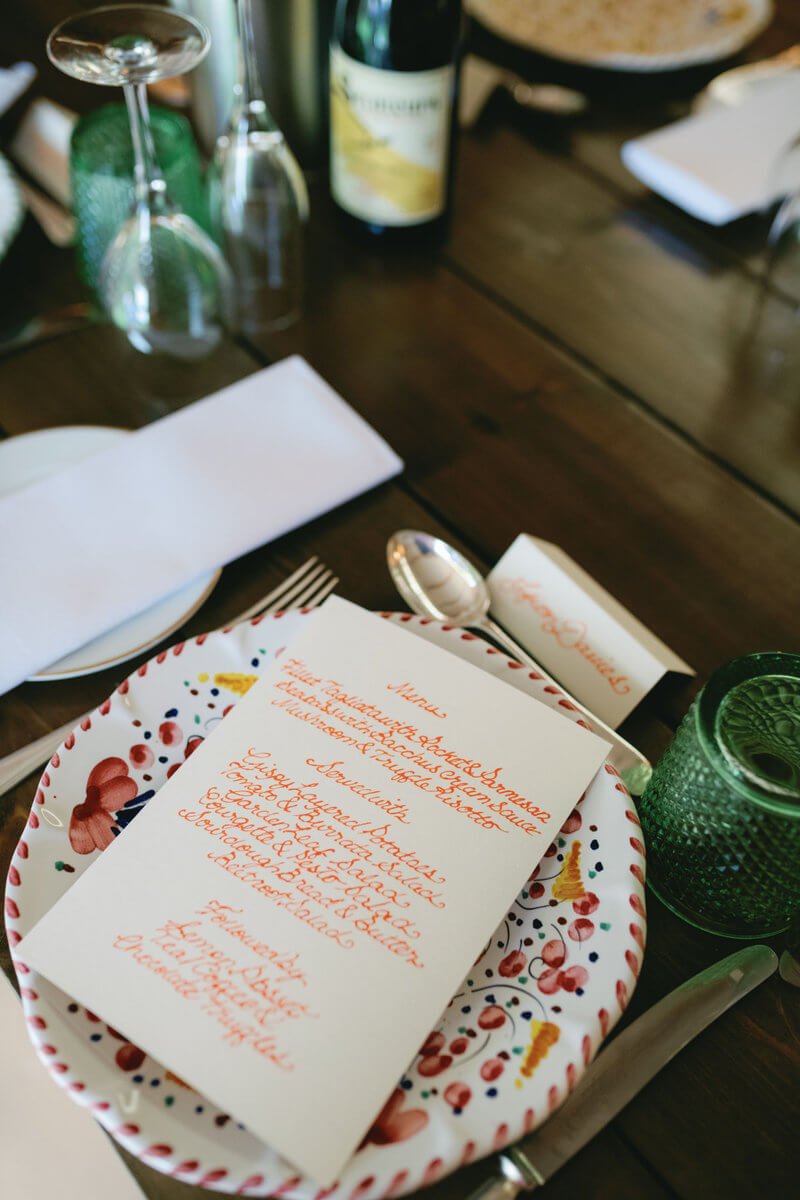 Menu
Fillet Tagliata with Rocket & Parmesan
Sea Bass with Bacchus Cream Sauce
Mushroom & Truffle Risotto
Served with
Crispy Layered Potatoes
Tomato & Burrata Salad
Garden Leaf Salad
Courgette & Pesto Salad
Sourdough Bread & Butter
Beetroot Salad
Followed by
Lemon Posset
Tea, Coffee &
Chocolate Truffles
Davies